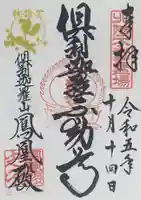 奉拝
令和五年
十月十四日
倶利迦羅不動寺
倶利迦羅山
鳳凰殿